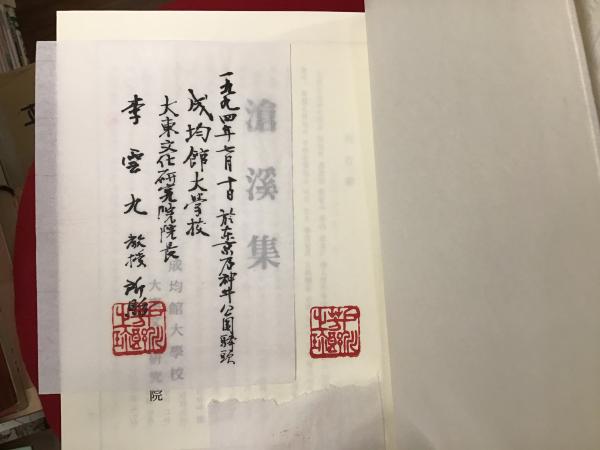 一九九四年七月十日於东京石神井公園驛頭
成均館大學校
大東文化研究院院長
李雲九教授所贈
滄溪集
成均館大學校
大東文化研究院